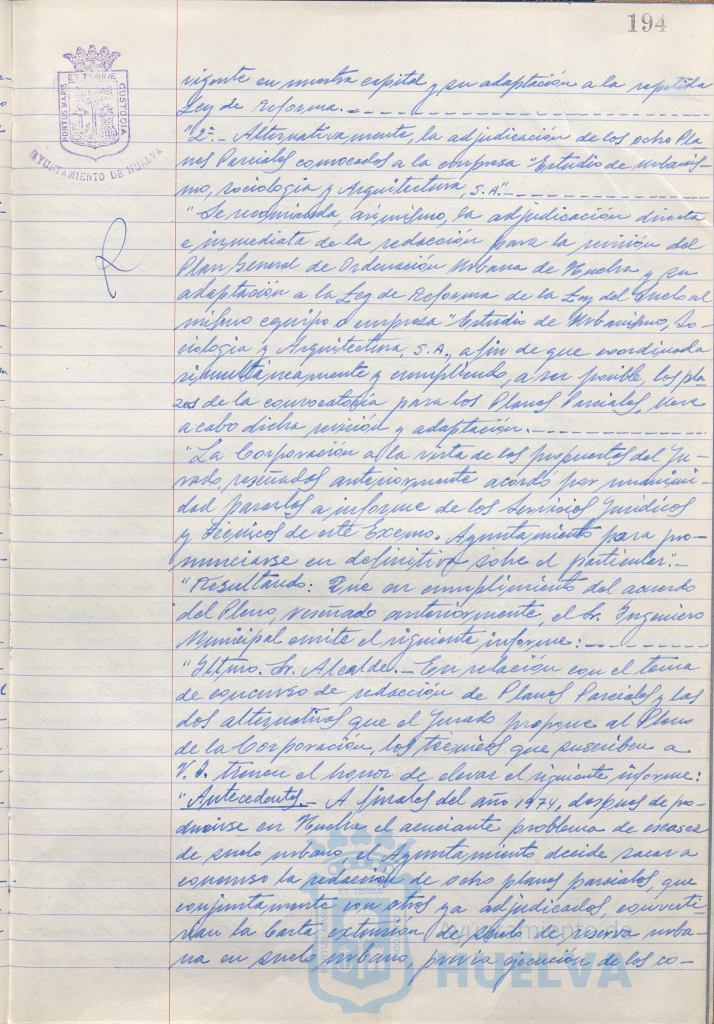 194
ET TERRÆ
PORTUS MARIS
CUSTODIA
AYUNTAMIENTO DE HUELVA
vigente en nuestra capital y su adaptación a la repetida
Ley de Reforma.
"2º.- Alternativamente, la adjudicación de los ocho Pla
nes Parciales convocados a la empresa "Estudio de Urbanis-
mo, sociología y Arquitectura, S.A."
"Se recomienda, asimismo, la adjudicación directa
e inmediata de la redacción para la revisión del
Plan General de Ordenación Urbana de Huelva y su
adaptación a la Ley de Reforma de la Ley del Suelo al
mismo equipo o empresa "Estudio de Urbanismo, So-
ciología y Arquitectura, S.A., a fin de que coordinada
simultáneamente y cumpliendo, a ser posible, los pla
zos de la convocatoria para los Planes Parciales, lleve
a cabo dicha revisión y adaptación.
"La Corporación a la vista de las propuestas del Ju-
rado, reseñadas anteriormente acordó por unanimi-
dad pasarlos a informe de los Servicios Jurídicos
y Técnicos de este Excmo. Ayuntamiento para pro-
nunciarse en definitiva sobre el particular".-
"Resultando: Que en cumplimiento del acuerdo
del Pleno, reseñado anteriormente, el Sr. Ingeniero
Municipal emite el siguiente informe:
"Iltmo. Sr. Alcalde.- En relación con el tema
de concurso de redacción de Planes Parciales y las
dos alternativas que el Jurado propone al Pleno
de la Corporación, los técnicos que suscriben a
V.I. tienen el honor de elevar el siguiente informe:
"Antecedentes.- A finales del año 1974, después de pro-
ducirse en Huelva el acuciante problema de escasez
de suelo urbano, el Ayuntamiento decide sacar a
concurso la redacción de ocho planes parciales, que
conjuntamente con otros ya adjudicados, converti-
rían la extensión de suelo de reserva urba-
na en suelo urbano, previa ejecución de los co-
Ayuntamiento de
HUELVA